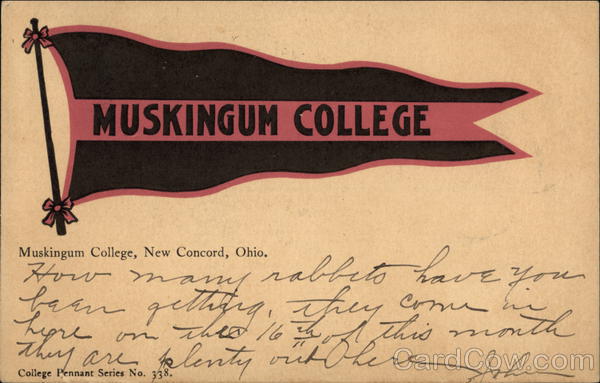 MUSKINGUM COLLEGE
Muskingum College, New Concord, Ohio.
How many rabbits have you
been getting. they come in
here on the 16 th of this month
they are plenty out here
College Pennant Series No. 338.
CardCow.com